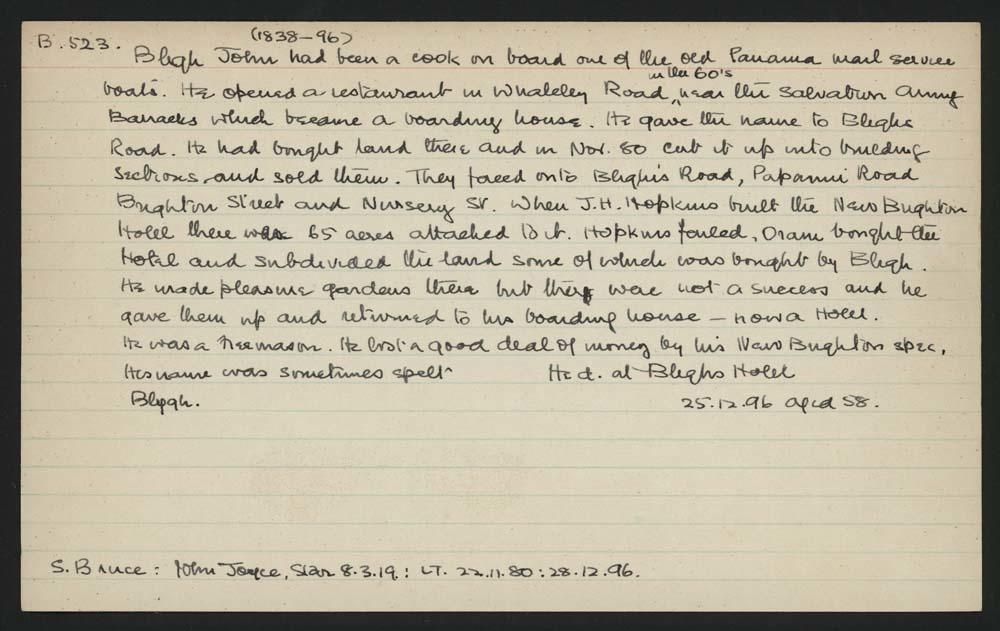 B.523. (1838-96)
Bligh John had been a cook on board one of the old Panama mail service
boats. He opened a restaurant in Whateley Road, in the 60's near the Salvation Army
Barracks which became a boarding house. He gave the name to Blighs
Road. He had bought land there and in Nov. 80 cut it up into building
sections and sold them. They faced onto Bligh's Road, Papanui Road
Brighton Street and Nursery St. When J.H. Hopkins built the New Brighton
Hotel there was 65 acres attached to it. Hopkins failed, Oram bought the
Hotel and subdivided the land some of which was bought by Bligh.
He made pleasure gardens there but they were not a success and he
gave them up and returned to his boarding house - now a Hotel.
He was a Freemason. He lost a good deal of money by his New Brighton spec.
His name was sometimes spelt He d. at Blighs Hotel
Blygh. 25.12.96 aged 58.
S. Bruce: John Joyce, Star 8.3.19.: LT. 22.11.80: 28.12.96.